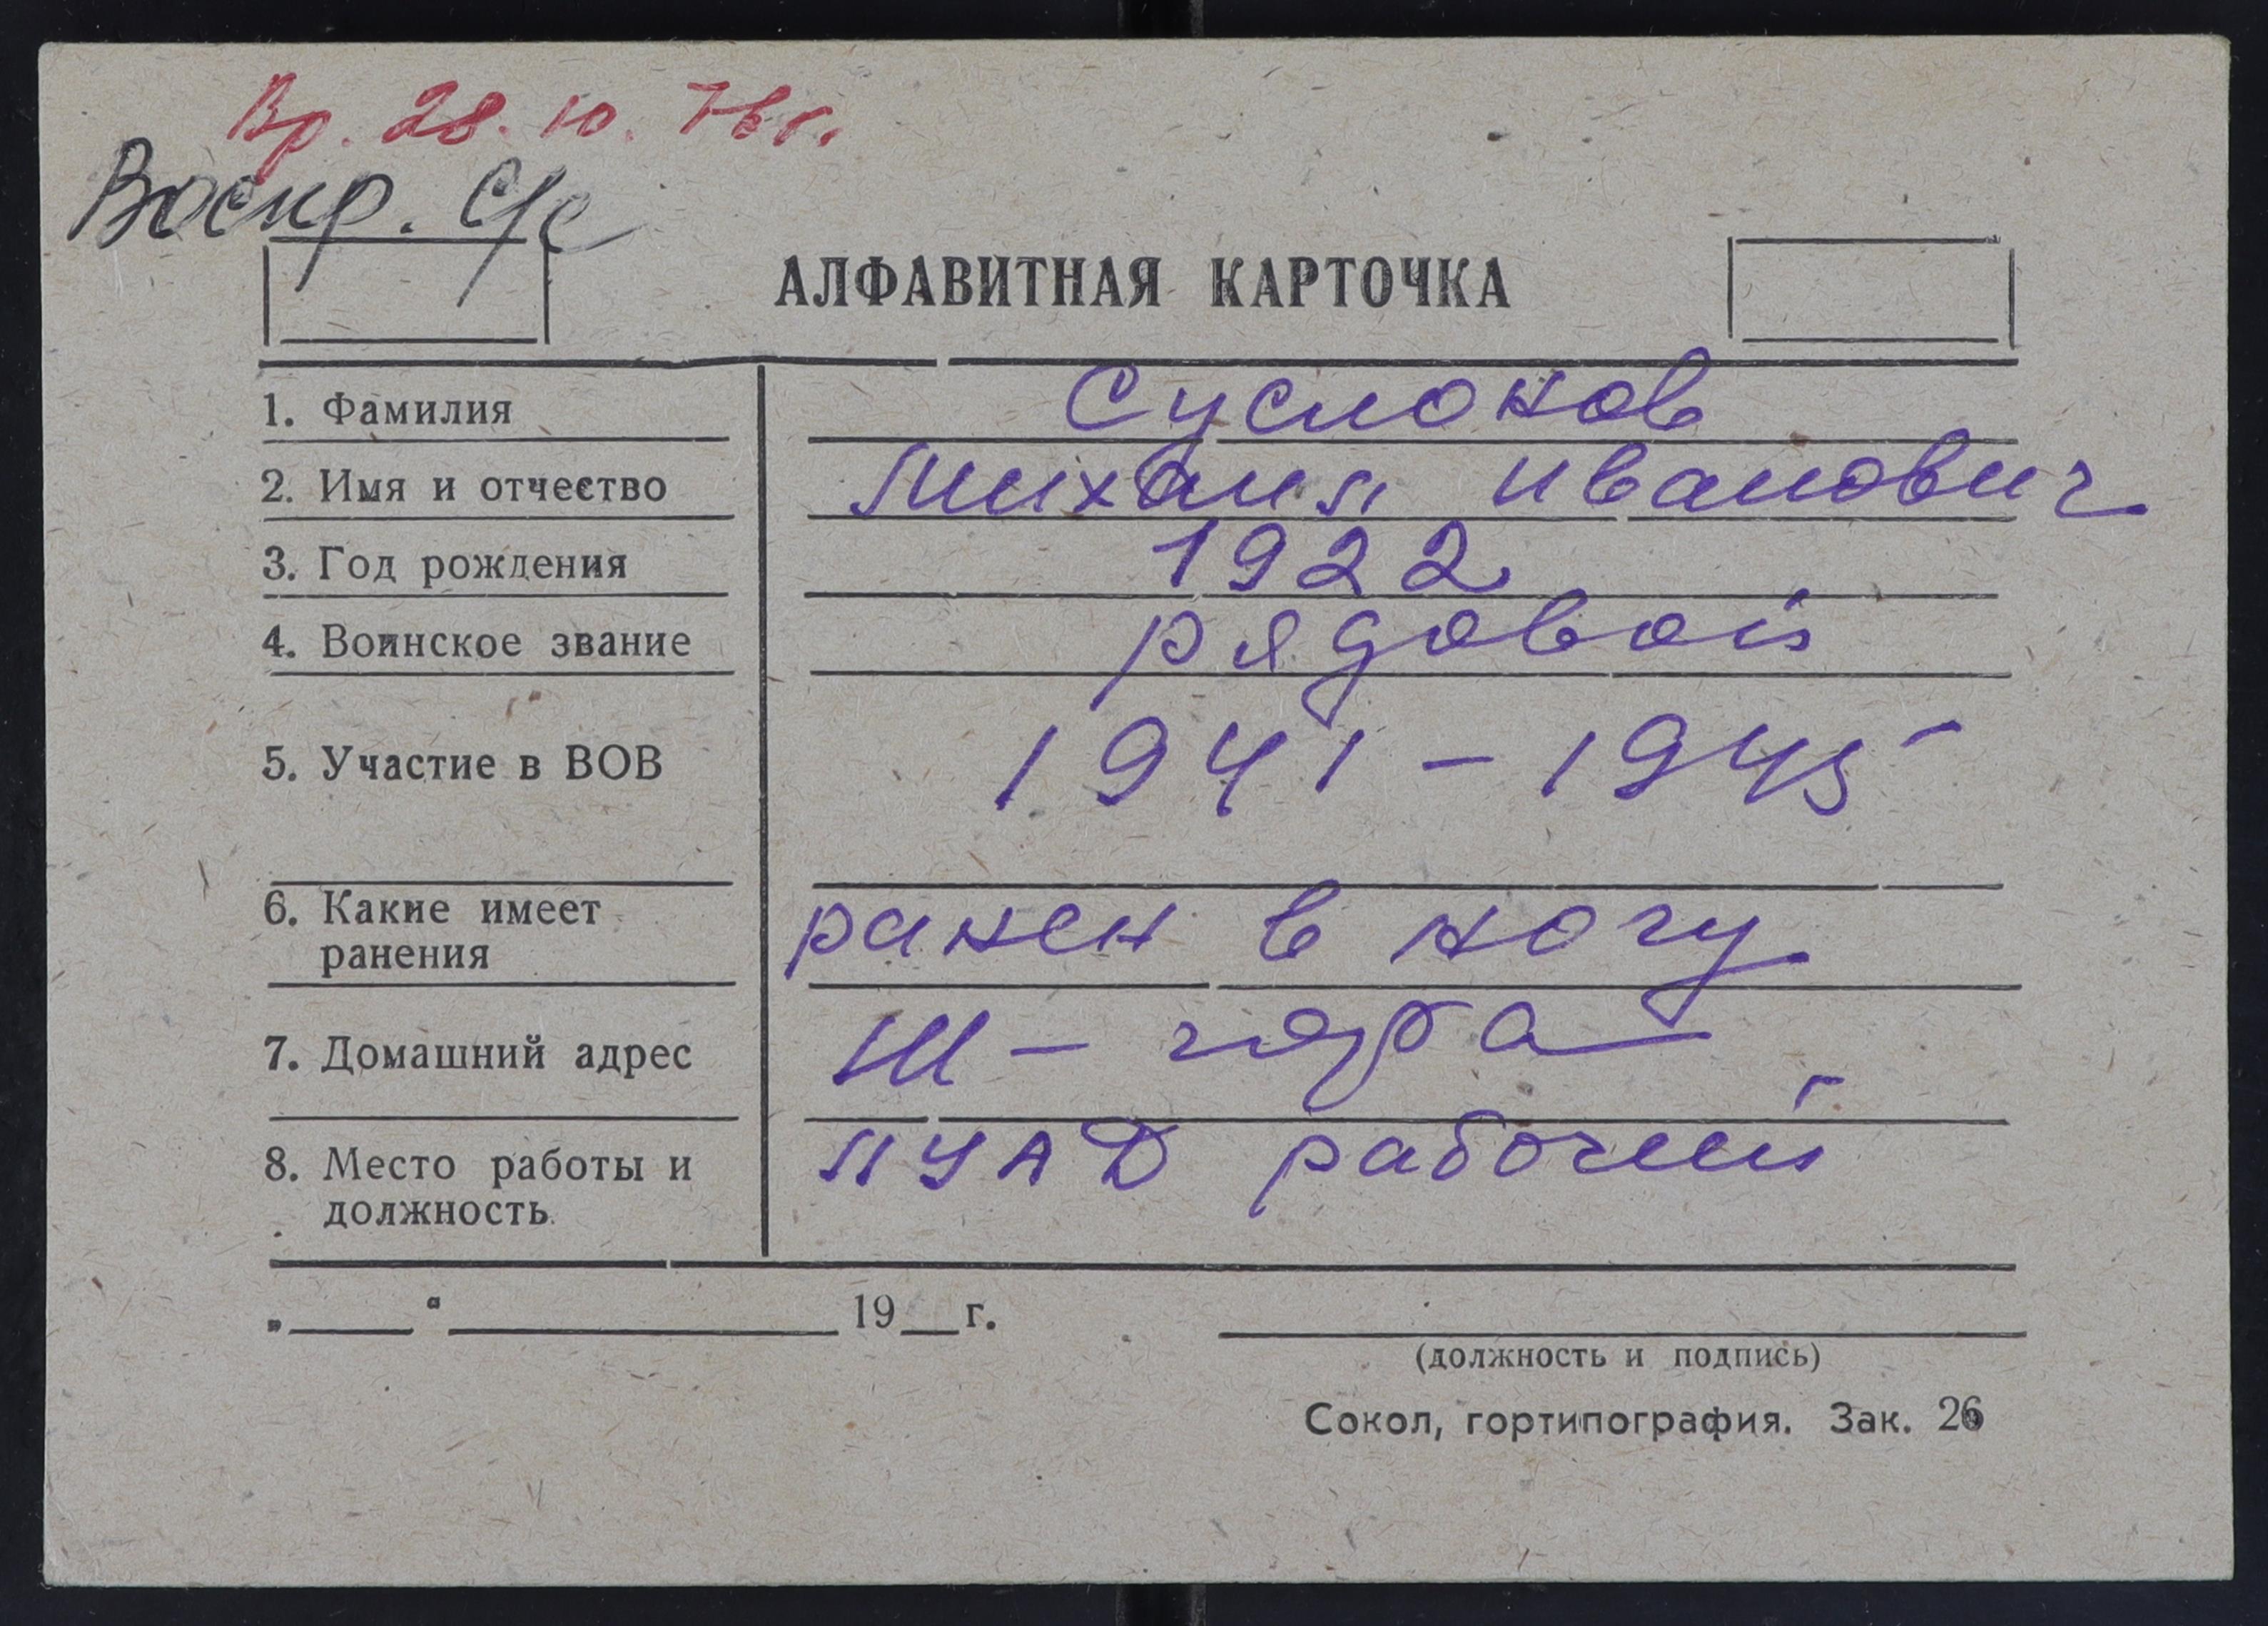 Вр. 28. 10. 76 г.
Воскр. с/с
АЛФАВИТНАЯ КАРТОЧКА
1. Фамилия Суслонов
2. Имя и отчество Михаил Иванович
3. Год рождения 1922
4. Воинское звание рядовой
5. Участие в ВОВ 1941 - 1945
6. Какие имеет ранен в ногу
ранения
7. Домашний адрес Ш-
8. Место работы и ПУАД рабочий
должность
„ “ 19 г.
(должность и подпись)
Сокол, гортипография. Зак. 26